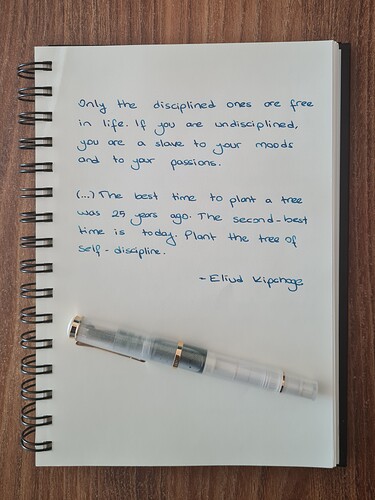 Only the disciplined ones are free
in life. If you are undisciplined,
you are a slave to your moods
and to your passions.
(...) The best time to plant a tree
was 25 years ago. The second-best
time is today. Plant the tree of
self-discipline.
- Eliud Kipchoge